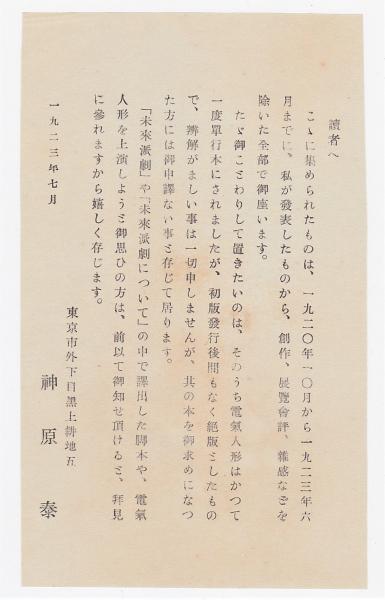 讀者へ
こゝに集められたものは、一九二〇年一〇月から一九二三年六
月までに、私が發表したものから、創作、展覽會評、雜感などを
除いた全部で御座います。
たゞ御ことわりして置きたいのは、そのうち電氣人形はかつて
一度單行本にされましたが、初版發行後間もなく絕版としたもの
で、辨解がましい事は一切申しませんが、其の本を御求めになつ
た方には御申譯ない事と存じて居ります。
「未來派劇」や「未來派劇について」の中で譯出した脚本や、電氣
人形を上演しようと御思ひの方は、前以て御知せ頂けると、拜見
に參れますから嬉しく存じます。
一九二三年七月
東京市外下目黑上耕地五
神原泰